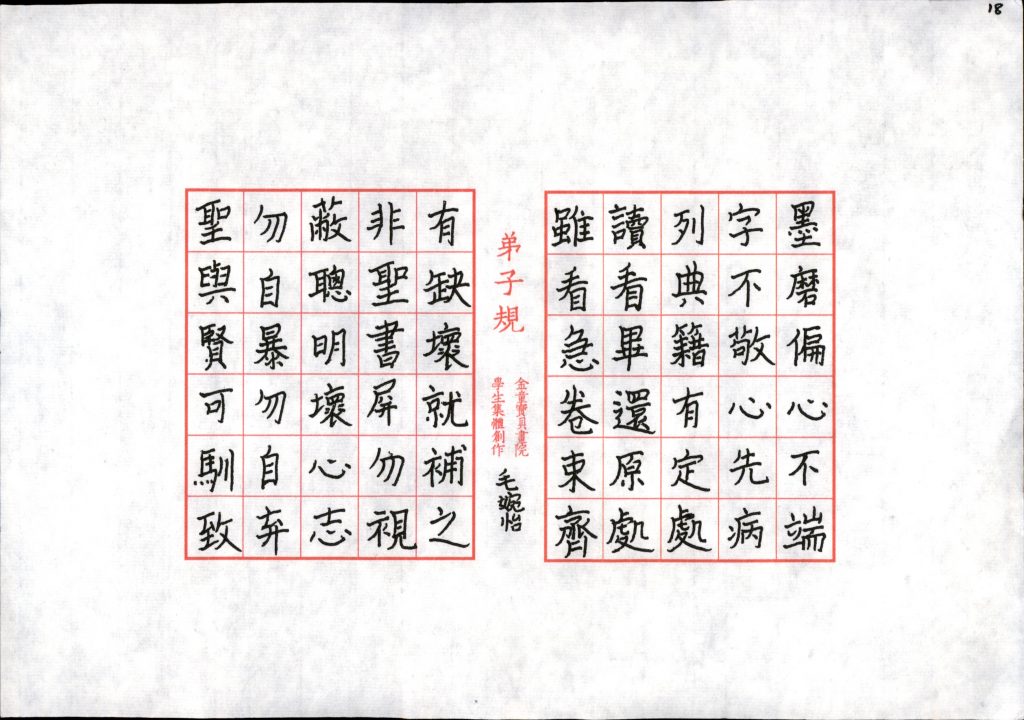 18
墨磨偏心不端
字不敬心先病
列典籍有定處
讀看畢還原處
雖看急卷束齊
弟子規
金童寶貝畫院
學生集體創作
毛婉怡
有缺壞就補之
非聖書屏勿視
蔽聰明壞心志
勿自暴勿自弃
聖與賢可馴致